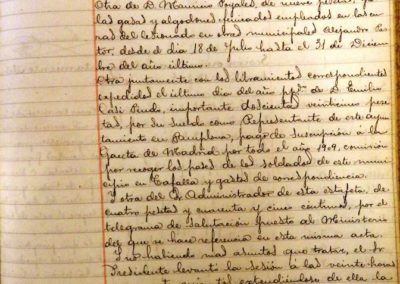 Otra de D. Mauricio Pajales, de nueve pesetas, por
las gasas y algodones fenicados empleados en las cu-
ras del lesionado en obras municipales Alejandro Pas-
tor, desde el dia 18 de Julio hasta el 31 de Diciem-
bre del año último.
Otra juntamente con los libramientos correspondientes
expedidos el último dia del año ppdo. de D. Emilio
importante doscientas veinticinco pese-
tas, por su sueldo como Representante de este ayun-
tamiento en Pamplona, pago de suscripción á la
Gaceta de Madrid por todo el año 1909, comisión
por recoger los pases de los soldados de este muni-
cipio en Tafalla y gastos de correspondencia.
Y otra del Sr. Administrador de esta estafeta, de
cuatro pesetas y cuarenta y cinco céntimos, por el
telegrama de salutación puesto al Ministerio
del que se hace referencia en esta misma acta.
Y no habiendo mas asuntos que tratar, el Sr.
Presidente levantó la sesión á las veinte horas
extendiendose de ella la